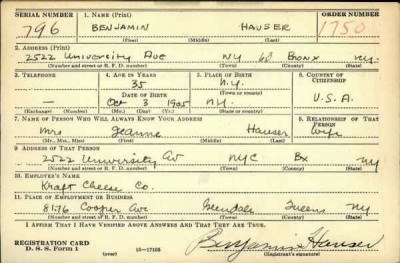 SERIAL NUMBER 1. NAME (Print) ORDER NUMBER
796 BENJAMIN HAUSER 1750
(First) (Middle) (Last)
2. ADDRESS (Print)
2522 University Ave NY Bronx NY.
(Number and street or R. F. D. number) (Town) (County) (State)
3. TELEPHONE 4. AGE IN YEARS 5. PLACE OF BIRTH 6. COUNTRY OF CITIZENSHIP
35 N.Y.
— DATE OF BIRTH (Town or county)
Oct 3 1905 NY. U.S.A.
(Exchange) (Number) (Mo.) (Day) (Yr.) (State or country)
7. NAME OF PERSON WHO WILL ALWAYS KNOW YOUR ADDRESS 8. RELATIONSHIP OF THAT PERSON
Mrs Jeanne Hauser Wife
(Mr., Mrs., Miss) (First) (Middle) (Last)
9. ADDRESS OF THAT PERSON
2522 University Av NYC Bx NY
(Number and street or R. F. D. number) (Town) (County) (State)
10. EMPLOYER'S NAME
Kraft Cheese Co.
11. PLACE OF EMPLOYMENT OR BUSINESS
8176 Cooper Ave Glendale Queens NY
(Number and street or R. F. D. number) (Town) (County) (State)
I AFFIRM THAT I HAVE VERIFIED ABOVE ANSWERS AND THAT THEY ARE TRUE.
REGISTRATION CARD
D. S. S. Form 1 16—17105 Benjamin Hauser
(Registrant's signature)